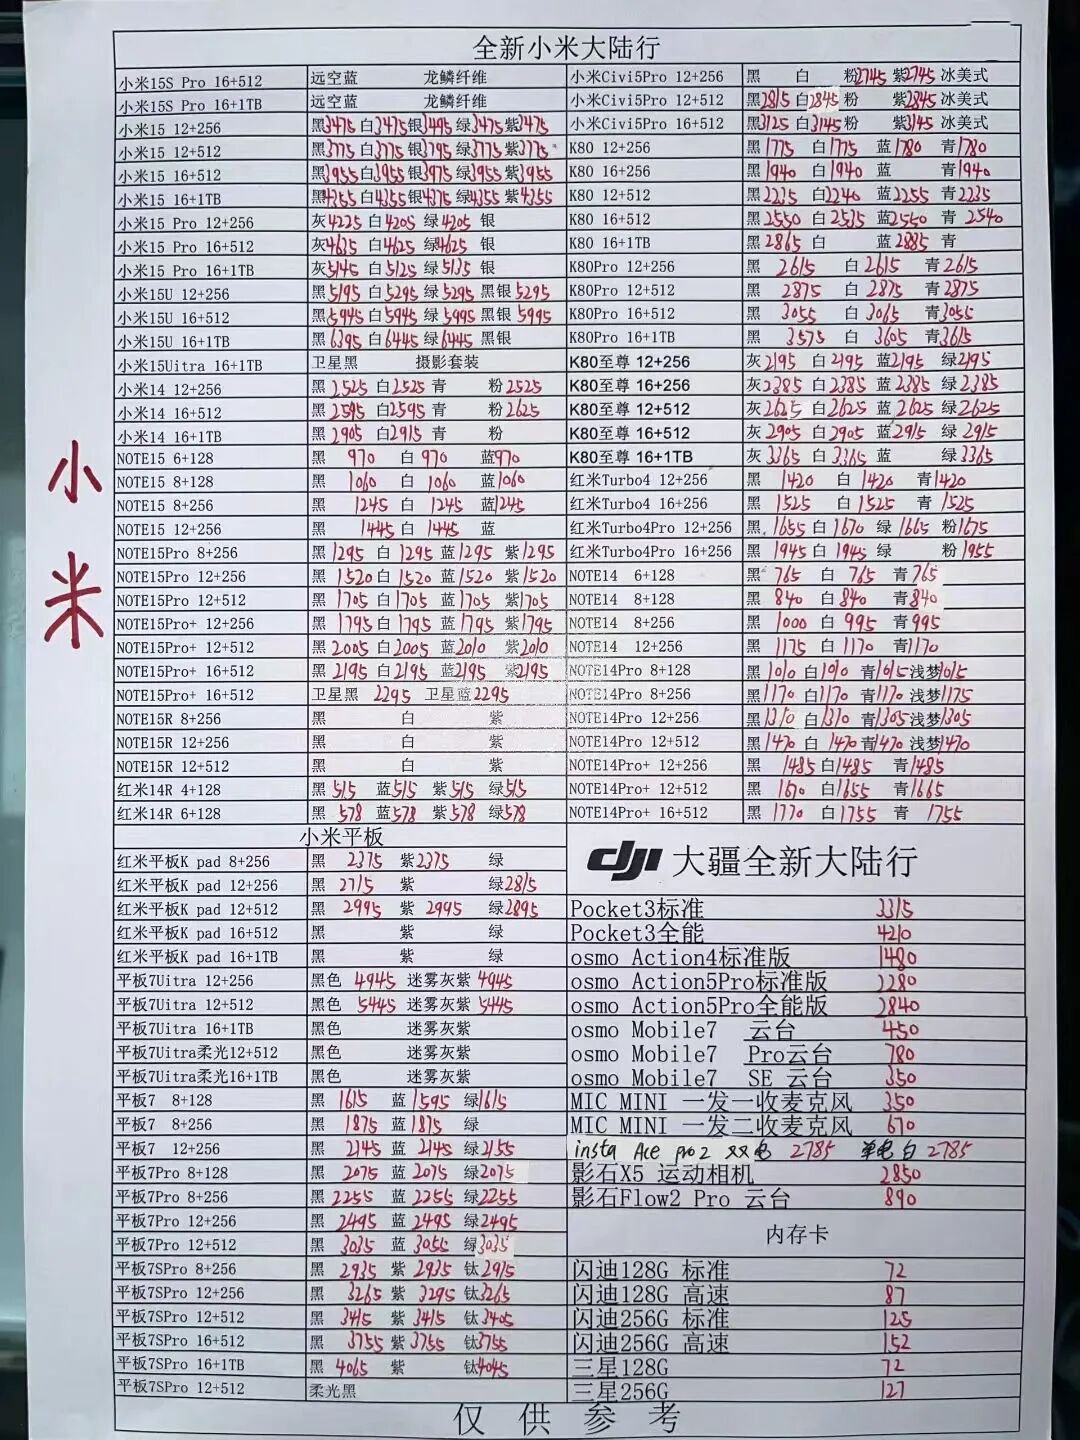 全新小米大陆行
小米
小米15S Pro 16+512 远空蓝 龙鳞纤维
小米15S Pro 16+1TB 远空蓝 龙鳞纤维
小米15 12+256 黑3475 白3475 银3495 绿3475 紫3475
小米15 12+512 黑3775 白3775 银3795 绿3775 紫3775
小米15 16+512 黑3955 白3955 银3975 绿3955 紫3955
小米15 16+1TB 黑4355 白4355 银4375 绿4355 紫4355
小米15 Pro 12+256 灰4225 白4205 绿4205 银
小米15 Pro 16+512 灰4635 白4625 绿4625 银
小米15 Pro 16+1TB 灰5145 白5125 绿5135 银
小米15U 12+256 黑5195 白5295 绿5295 黑银5295
小米15U 16+512 黑5945 白5945 绿5995 黑银5995
小米15U 16+1TB 黑6395 白6445 绿6445 黑银
小米15Uitra 16+1TB 卫星黑 摄影套装
小米14 12+256 黑2525 白2525 青 粉2525
小米14 16+512 黑2595 白2595 青 粉2625
小米14 16+1TB 黑2905 白2915 青 粉
NOTE15 6+128 黑 970 白 970 蓝970
NOTE15 8+128 黑 1060 白 1060 蓝1060
NOTE15 8+256 黑 1245 白 1245 蓝1245
NOTE15 12+256 黑 1445 白 1445 蓝
NOTE15Pro 8+256 黑 1295 白 1295 蓝1295 紫1295
NOTE15Pro 12+256 黑 1520 白 1520 蓝1520 紫1520
NOTE15Pro 12+512 黑 1705 白 1705 蓝1705 紫1705
NOTE15Pro+ 12+256 黑 1795 白 1795 蓝1795 紫1795
NOTE15Pro+ 12+512 黑 2005 白 2005 蓝2010 紫2010
NOTE15Pro+ 16+512 黑 2195 白 2195 蓝2195 紫2195
NOTE15Pro+ 16+512 卫星黑 2295 卫星蓝2295
NOTE15R 8+256 黑 白 紫
NOTE15R 12+256 黑 白 紫
NOTE15R 12+512 黑 白 紫
红米14R 4+128 黑 515 蓝515 紫515 绿515
红米14R 6+128 黑 578 蓝578 紫578 绿578
小米平板
红米平板K pad 8+256 黑 2375 紫2375 绿
红米平板K pad 12+256 黑 2715 紫 绿2815
红米平板K pad 12+512 黑 2995 紫 2995 绿2895
红米平板K pad 16+512 黑 紫 绿
红米平板K pad 16+1TB 黑 紫 绿
平板7Uitra 12+256 黑色 4945 迷雾灰紫 4945
平板7Uitra 12+512 黑色 5445 迷雾灰紫 5445
平板7Uitra 16+1TB 黑色 迷雾灰紫
平板7Uitra柔光12+512 黑色 迷雾灰紫
平板7Uitra柔光16+1TB 黑色 迷雾灰紫
平板7 8+128 黑 1615 蓝 1595 绿1615
平板7 8+256 黑 1875 蓝 1875 绿
平板7 12+256 黑 2145 蓝 2145 绿2155
平板7Pro 8+128 黑 2075 蓝 2075 绿2075
平板7Pro 8+256 黑 2255 蓝 2255 绿2255
平板7Pro 12+256 黑 2495 蓝 2495 绿2495
平板7Pro 12+512 黑 3035 蓝 3055 绿3035
平板7SPro 8+256 黑 2935 紫 2935 钛2915
平板7SPro 12+256 黑 3265 紫 3295 钛3265
平板7SPro 12+512 黑 3415 紫 3415 钛3405
平板7SPro 16+512 黑 3755 紫 3755 钛3755
平板7SPro 16+1TB 黑 4065 紫 钛4045
平板7SPro 12+512 柔光黑
小米Civi5Pro 12+256 黑 白 粉2745 紫2745 冰美式
小米Civi5Pro 12+512 黑2815 白2845 粉 紫2845 冰美式
小米Civi5Pro 16+512 黑3125 白3145 粉 紫3145 冰美式
K80 12+256 黑1775 白1775 蓝1780 青1780
K80 16+256 黑1940 白1940 蓝 青1940
K80 12+512 黑2235 白2240 蓝2255 青2235
K80 16+512 黑2550 白2535 蓝2550 青 2540
K80 16+1TB 黑2865 白 蓝2885 青
K80Pro 12+256 黑 2615 白2615 青2615
K80Pro 12+512 黑 2875 白 2875 青2875
K80Pro 16+512 黑 3055 白 3065 青3055
K80Pro 16+1TB 黑 3575 白 3605 青3615
K80至尊 12+256 灰2195 白2195 蓝2195 绿2195
K80至尊 16+256 灰2385 白2385 蓝2385 绿2385
K80至尊 12+512 灰2625 白2625 蓝2625 绿2625
K80至尊 16+512 灰2905 白2905 蓝2915 绿2915
K80至尊 16+1TB 灰3365 白3365 蓝 绿3365
红米Turbo4 12+256 黑 1420 白 1420 青1420
红米Turbo4 16+256 黑 1525 白 1525 青 1525
红米Turbo4Pro 12+256 黑1655 白1670 绿 1665 粉1675
红米Turbo4Pro 16+256 黑1945 白1945 绿 粉1955
NOTE14 6+128 黑 765 白 765 青765
NOTE14 8+128 黑 840 白 840 青840
NOTE14 8+256 黑 1000 白 995 青995
NOTE14 12+256 黑 1175 白 1170 青1170
NOTE14Pro 8+128 黑1010 白1010 青1015 浅梦1015
NOTE14Pro 8+256 黑1170 白1170 青1170 浅梦1175
NOTE14Pro 12+256 黑1310 白1310 青1305 浅梦1305
NOTE14Pro 12+512 黑1470 白1470 青1470 浅梦1470
NOTE14Pro+ 12+256 黑 1485 白1485 青1485
NOTE14Pro+ 12+512 黑 1670 白1655 青1665
NOTE14Pro+ 16+512 黑 1770 白1755 青 1755
dji 大疆全新大陆行
Pocket3标准 3315
Pocket3全能 4210
osmo Action4标准版 1480
osmo Action5Pro标准版 2280
osmo Action5Pro全能版 2840
osmo Mobile7 云台 450
osmo Mobile7 Pro云台 780
osmo Mobile7 SE 云台 350
MIC MINI 一发一收麦克风 350
MIC MINI 一发二收麦克风 670
insta Ace pro2 双电 2785 单电白 2785
影石X5 运动相机 2850
影石Flow2 Pro 云台 890
内存卡
闪迪128G 标准 72
闪迪128G 高速 87
闪迪256G 标准 125
闪迪256G 高速 152
三星128G 72
三星256G 127
仅供参考